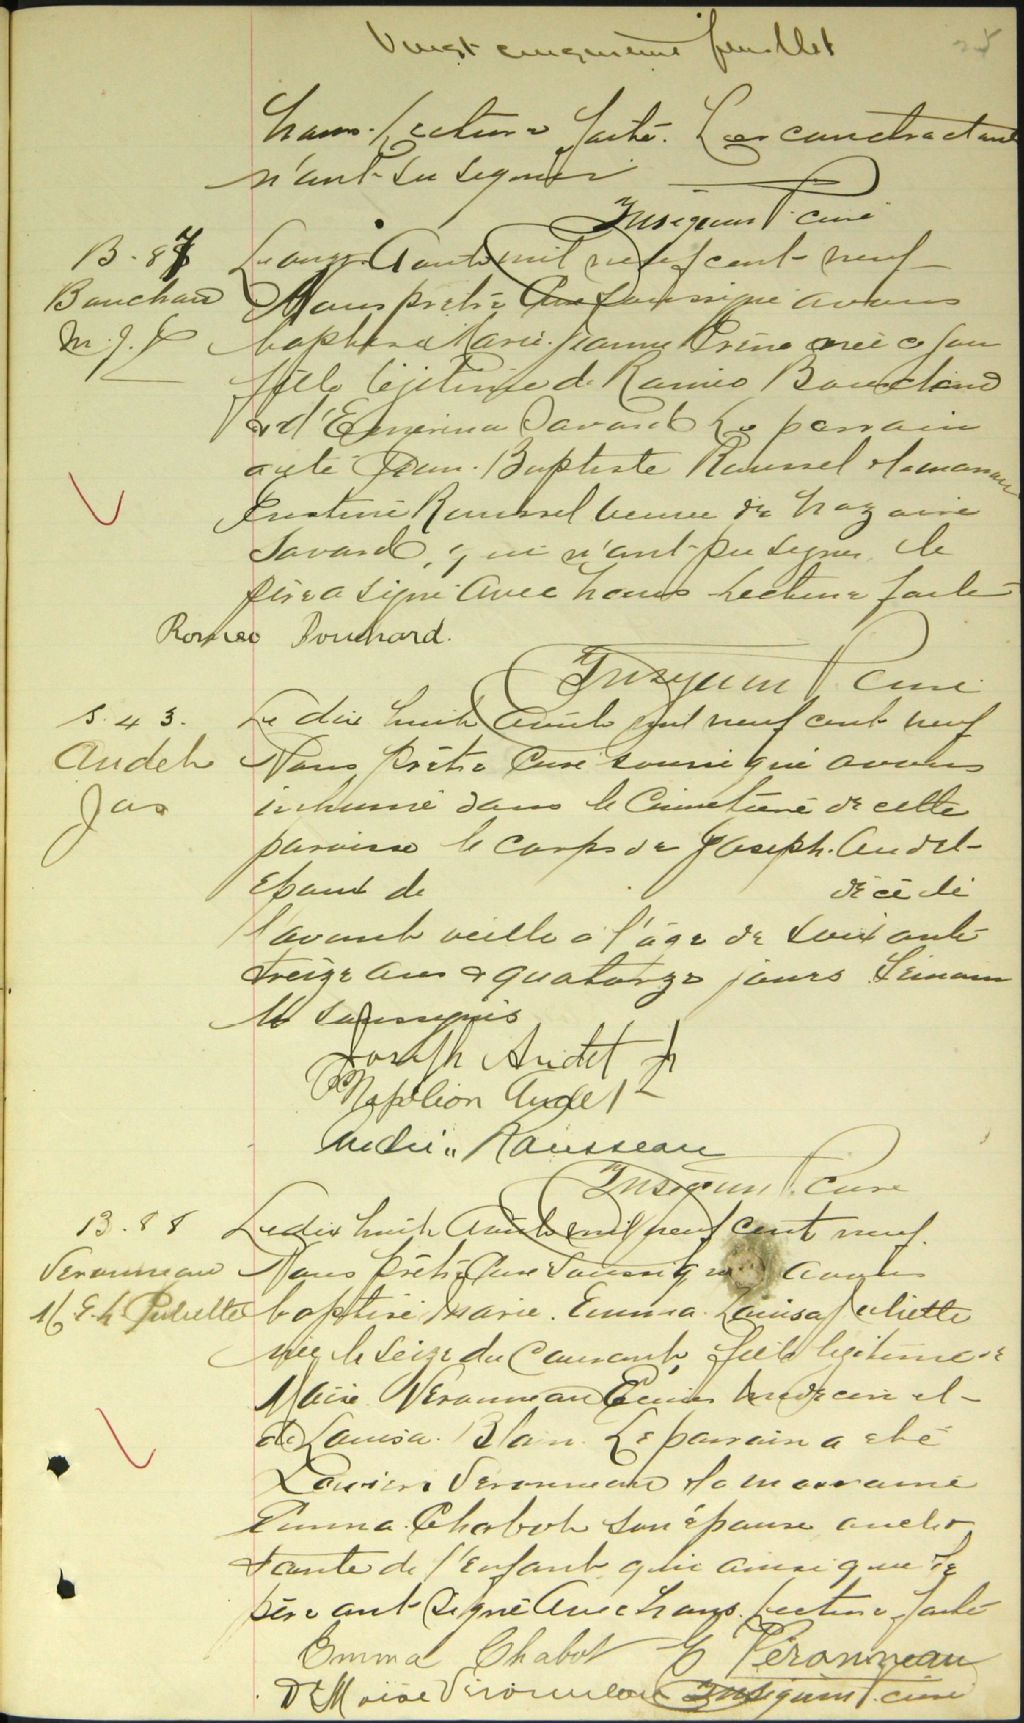 Vingt cinquième feuillet
25
nous. Lecture faite. Les contractants
n'ont su signer
curé
B. 87
Bouchard
M. J. I.
Le onze Août mil neuf cent neuf
Nous prêtre Curé soussigné avons
baptisé Marie Jeanne Irène née ce jour
fille légitime de Roméo Bouchard
& d'Emérina Savard Le parrain
a été Jean-Baptiste Roussel & la marraine
Roussel veuve de Nazaire
Savard, qui n'ont pu signer le
père a signé avec nous Lecture faite
Romeo Bouchard.
Curé
S. 43.
Audet
Jos
Le dix huit Août mil neuf cent neuf
Nous prêtre Curé soussigné avons
inhumé dans le Cimetière de cette
paroisse le corps de Joseph Audet
Epoux de décédé
l'avant veille à l'âge de soixante
treize ans & quatorze jours Témoins
les soussignés
Joseph Audet Jr
Napoléon Audet
Rousseau
Curé
B. 88
Veronneau
M. E. L. Juliette
Le dix huit Août mil neuf cent neuf.
Nous Prêtre Curé soussigné avons
baptisé Marie Emma Louisa Juliette
née le seize du Courant, fille légitime de
Moïse Veronneau Ecuier Médecin et
de Louisa Blain. Le parrain a été
Veronneau & la marraine
Emma Chabot son épouse oncle &
tante de l'enfant qui ainsi que le
père ont signé Avec nous. Lecture faite
Emma Chabot L Véronneau
Dr Moïse Véronneau curé